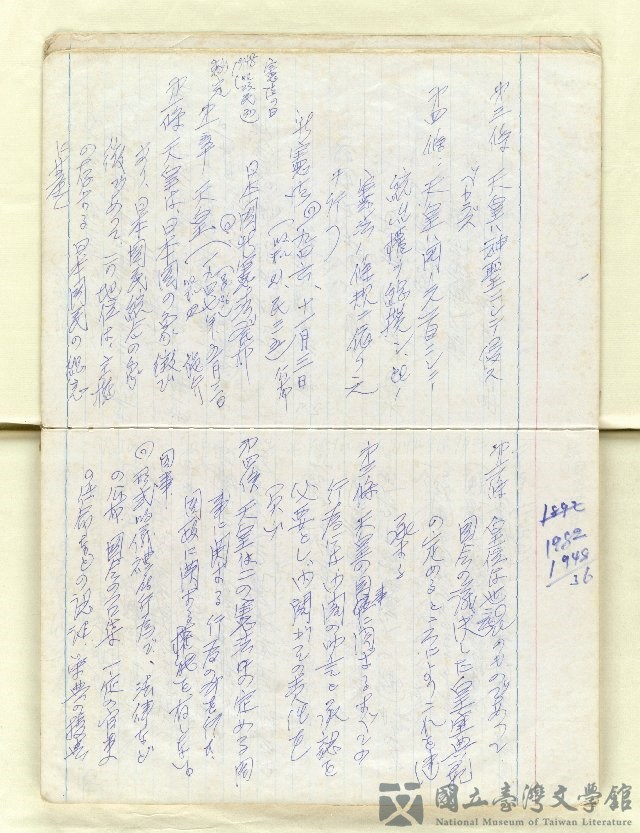 第三條 天皇ハ神聖ニシテ侵ス
ベカラズ
第四條、天皇ハ國ノ元首ニシテ
統治權ヲ總攬シ、此ノ
憲法ノ條規ニ依リ之
ヲ行フ
新憲法
一九四六、十一月三日
公布
日本國新憲法
憲法の日
第一章 天皇
五月三日
施行
第一條 天皇は、日本國の象徴で
あり、日本國民統合の象
徴であって、この地位は、主權
の存する日本國民の總意
に基く
第二條 皇位は世襲のものであって
國会の議決した皇室典範
の定めるところによりこれを継
承する
第三條 天皇の國事に関するすべての
行為には内閣の助言と承認を
必要とし、内閣がその責任を
負ふ
第四條 天皇はこの憲法の定める國
事に関する行為のみを行ひ
国政に関する権能を有しない。
国事
形式的儀礼的行為で、法律など
の公布 國会の召集 一定の官吏
の任命などの認証、栄典の授与
1892
1982
1948
36
國立臺灣文學館
National Museum of Taiwan Literature